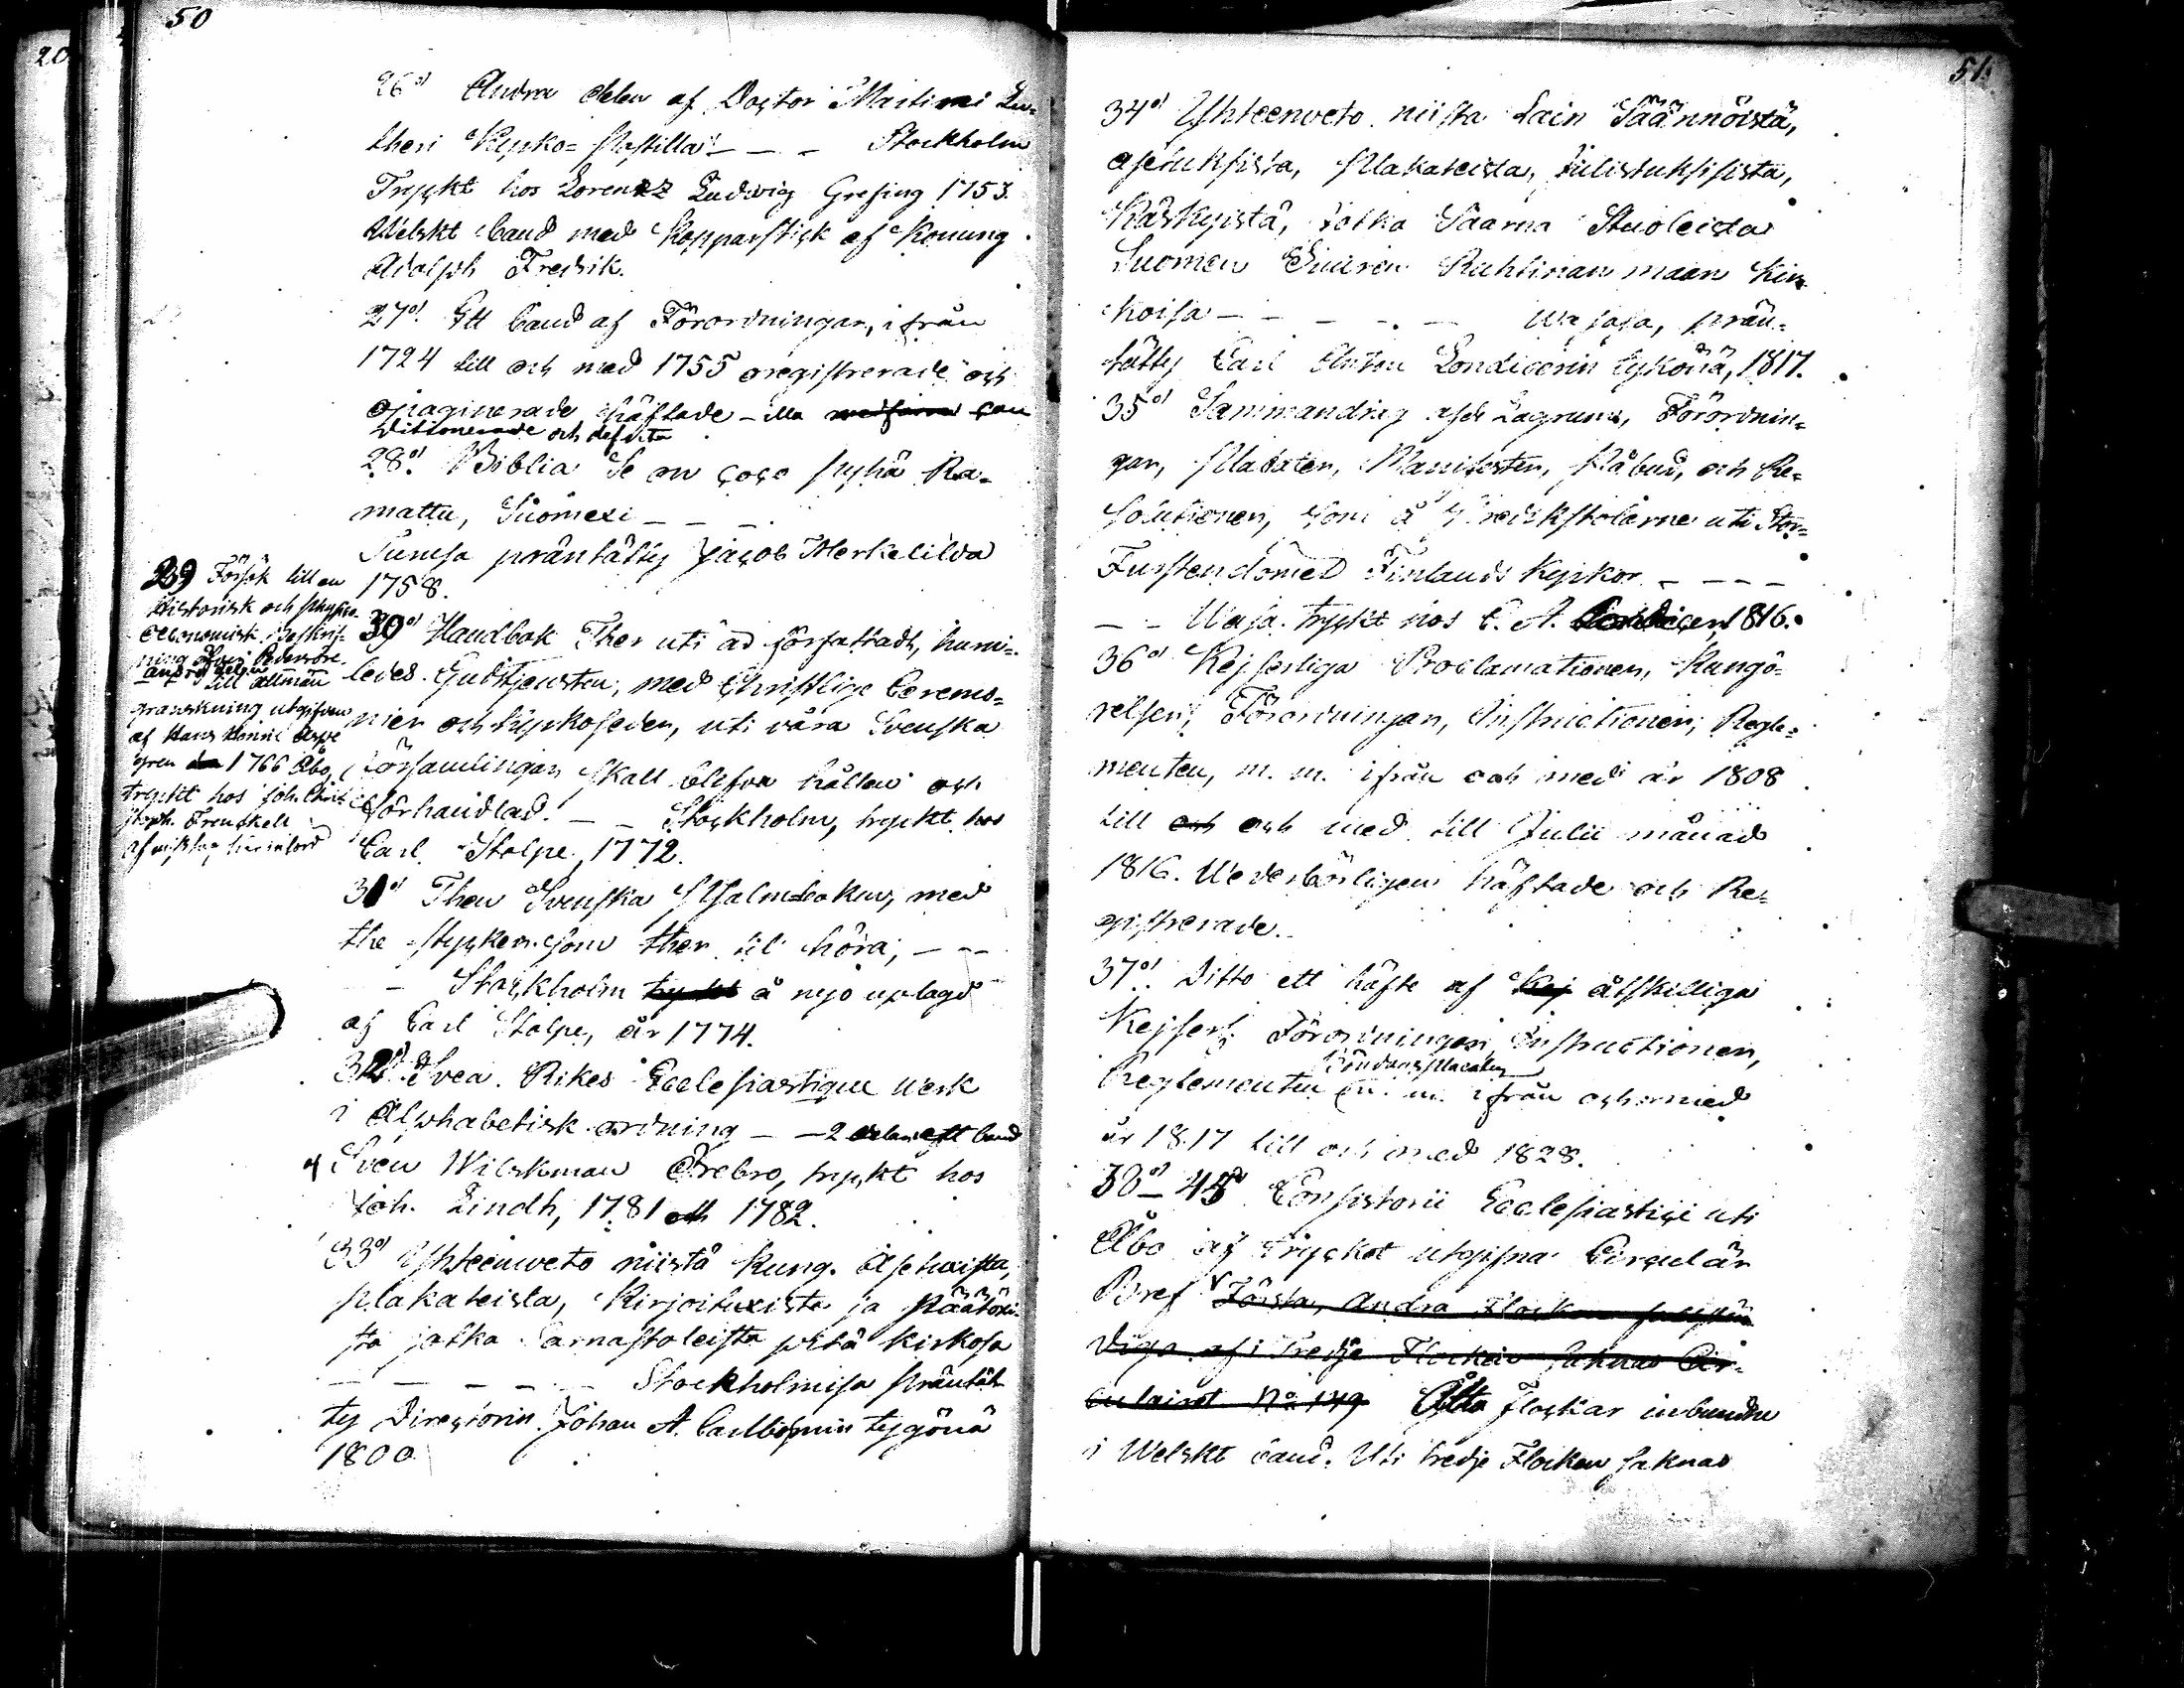 50
26:o Andra delen af Doctor Martini Lu=
theri Kyrko=Postilla - - - Stockholm
Tryckt hos Lorentz Ludwig Grefing 1753.
Welskt band med Kopparstick af Konung
Adolph Fredrik.
27:o Ett band af Förordningar, ifrån
1724 till och med 1755 oregistrerade och
opaginerade häftade - illa con
ditionerade och defecta
28:o Biblia Se on coco Pyhä Ra=
mattu, Suomexi - - -
Turusa präntätty Jacob Merkelilda
1758.
29 Försök till en
Historisk och Physico
Oeconomisk Beskrif=
ning öfver Pedersöre
andra delen
till allmän
granskning utgifven
af Hans Henric Aspe
gren 1766 Åbo,
tryckt hos Joh. Christ
stoph. Frenckell
af misstag härinförd
30:o Handbok Ther uti är författadt, huru=
ledes Gudstjensten, med Christlige Ceremo=
nier och kyrkoseder, uti våra Svenska
församlingar skall blifva hållen och
förhandlad. - - Stockholm, tryckt hos
Carl Stolpe, 1772.
31:o Then Svenska Psalmboken, med
the stycker som ther til höra, - - -
- Stockholm tryckt å nyo uplagd
af Carl Stolpe, år 1774.
32:o Svea Rikes Ecclesiastique Werk
i Alphabetisk ordning - - 2 delar ett band
af Sven Wilskman Örebro, tryckt hos
Joh. Lindh, 1781 och 1782.
33:o Yhteenweto niistä Kung. Asetuxista,
plakateista, Kirjoituxista ja päätöxi
stä jotka Sarnastoleista pitä kirkosa
- - - - - Stockholmisa präntät
ty Directorin Johan A. Carlbohmin tygönä
1800
51.
34:o Yhteenweto niista Lain Säännöistä,
asetuksista, Plakateista, Julistuksisista,
Käskyistä, jotka Saarna Stuoleista
Suomen Suuren Ruhtinan maan Kir
koisa - - - - - Wasasa, prän=
tätty Carl Anton Londicerin tykönä, 1817.
35:o Sammandrag af de Lagrum, Förordnin=
gar, Placater, Manifester, Påbud, och Re=
solutioner, som å Predikstolarne uti Stor=
Furstendömet Finlands Kyrkor - - - -
- - Wasa tryckt hos C. A. Londicer, 1816.
36:o Kejserliga Proclamationer, Kungö=
relser, Förordningar, Instructioner, Regle=
menten, m. m. ifrån och med år 1808
till och och med till Julii månad
1816. Wederbörligen häftade och Re=
gistrerade.
37:o Ditto ett häfte af Kej åtskilliga
Kejserl. Förordningar Instructioner,
Böndagsplacater
Reglementen m. m. ifrån och med
år 1817 till och med 1828.
38:o - 45 Consistorii Ecclesiastici uti
Åbo af Trycket utgifna Circulär
Bref Första, Andra Flocken
af i Tredje Flocken saknas Cir=
culairet No 149 Åtta flockar inbundne
i Welskt band. Uti tredje Flocken saknas